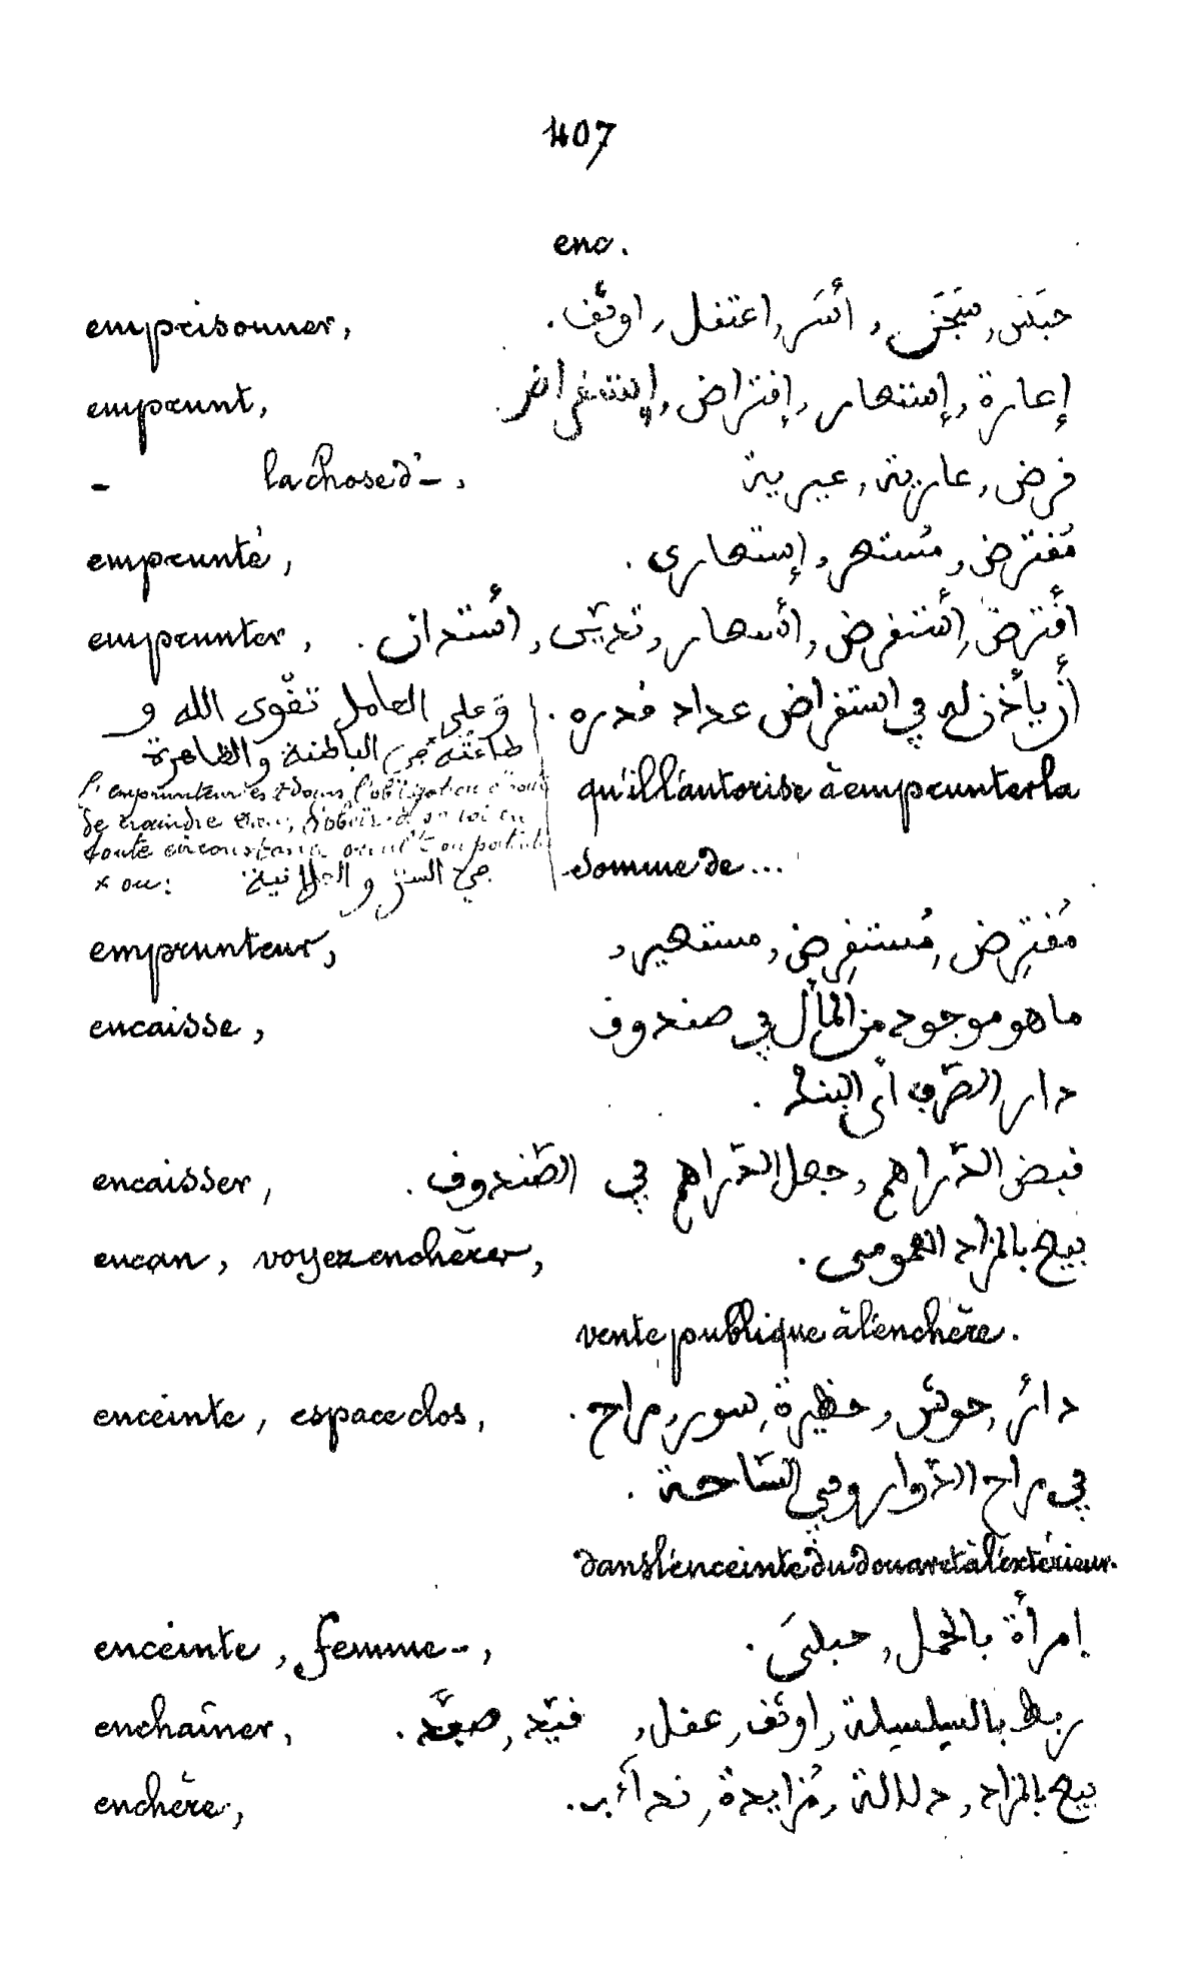 407
enc.
emprisonner, حبَسَ, سَجَنَ, أَسَر, اعتقل, اوثَق.
emprunt, إعارة, إستعار, إقتراض, إستقراض.
- la chose d'-, قرض, عارية, عيرية
emprunté, مُقترض, مُستعر, إستعارى.
emprunter, أقترض, أستقرض, أسعار, تديّن, أستدان.
أن يأذن له في استقراض عداد قدره.
qu'il l'autorise à emprunter la
somme de...
وعلى العامل تقوى الله و
طاعته في الباطنة والظاهرة
l'emprunteur est dans l'obligation
de craindre Dieu, d'obéir à sa loi en
toute circonstance
* ou: في السر والعلانية
emprunteur, مُقترِض, مُستقرِض, مستعير,
encaisse, ما هو موجود من المال في صندوق
دار الصّرف أي البنك.
encaisser, قبض الدّراهم, جعل الدّراهم في الصّندوق.
encan, voyez enchère, بيع بالمزاد العمومى.
vente publique à l'enchère.
enceinte, espace clos, دائر, حوش, حظيرة, سور, مراح.
في مراح الدّوار وفي السّاحة.
dans l'enceinte du douar et à l'extérieur.
enceinte, femme -, إمرأة بالحمل, حبلىَ.
enchaîner, ربط بالسلسلة, اوثق, عقل, قيّد, صفّد.
enchère, بيع بالمزاد, دلالة, مُزايدة,